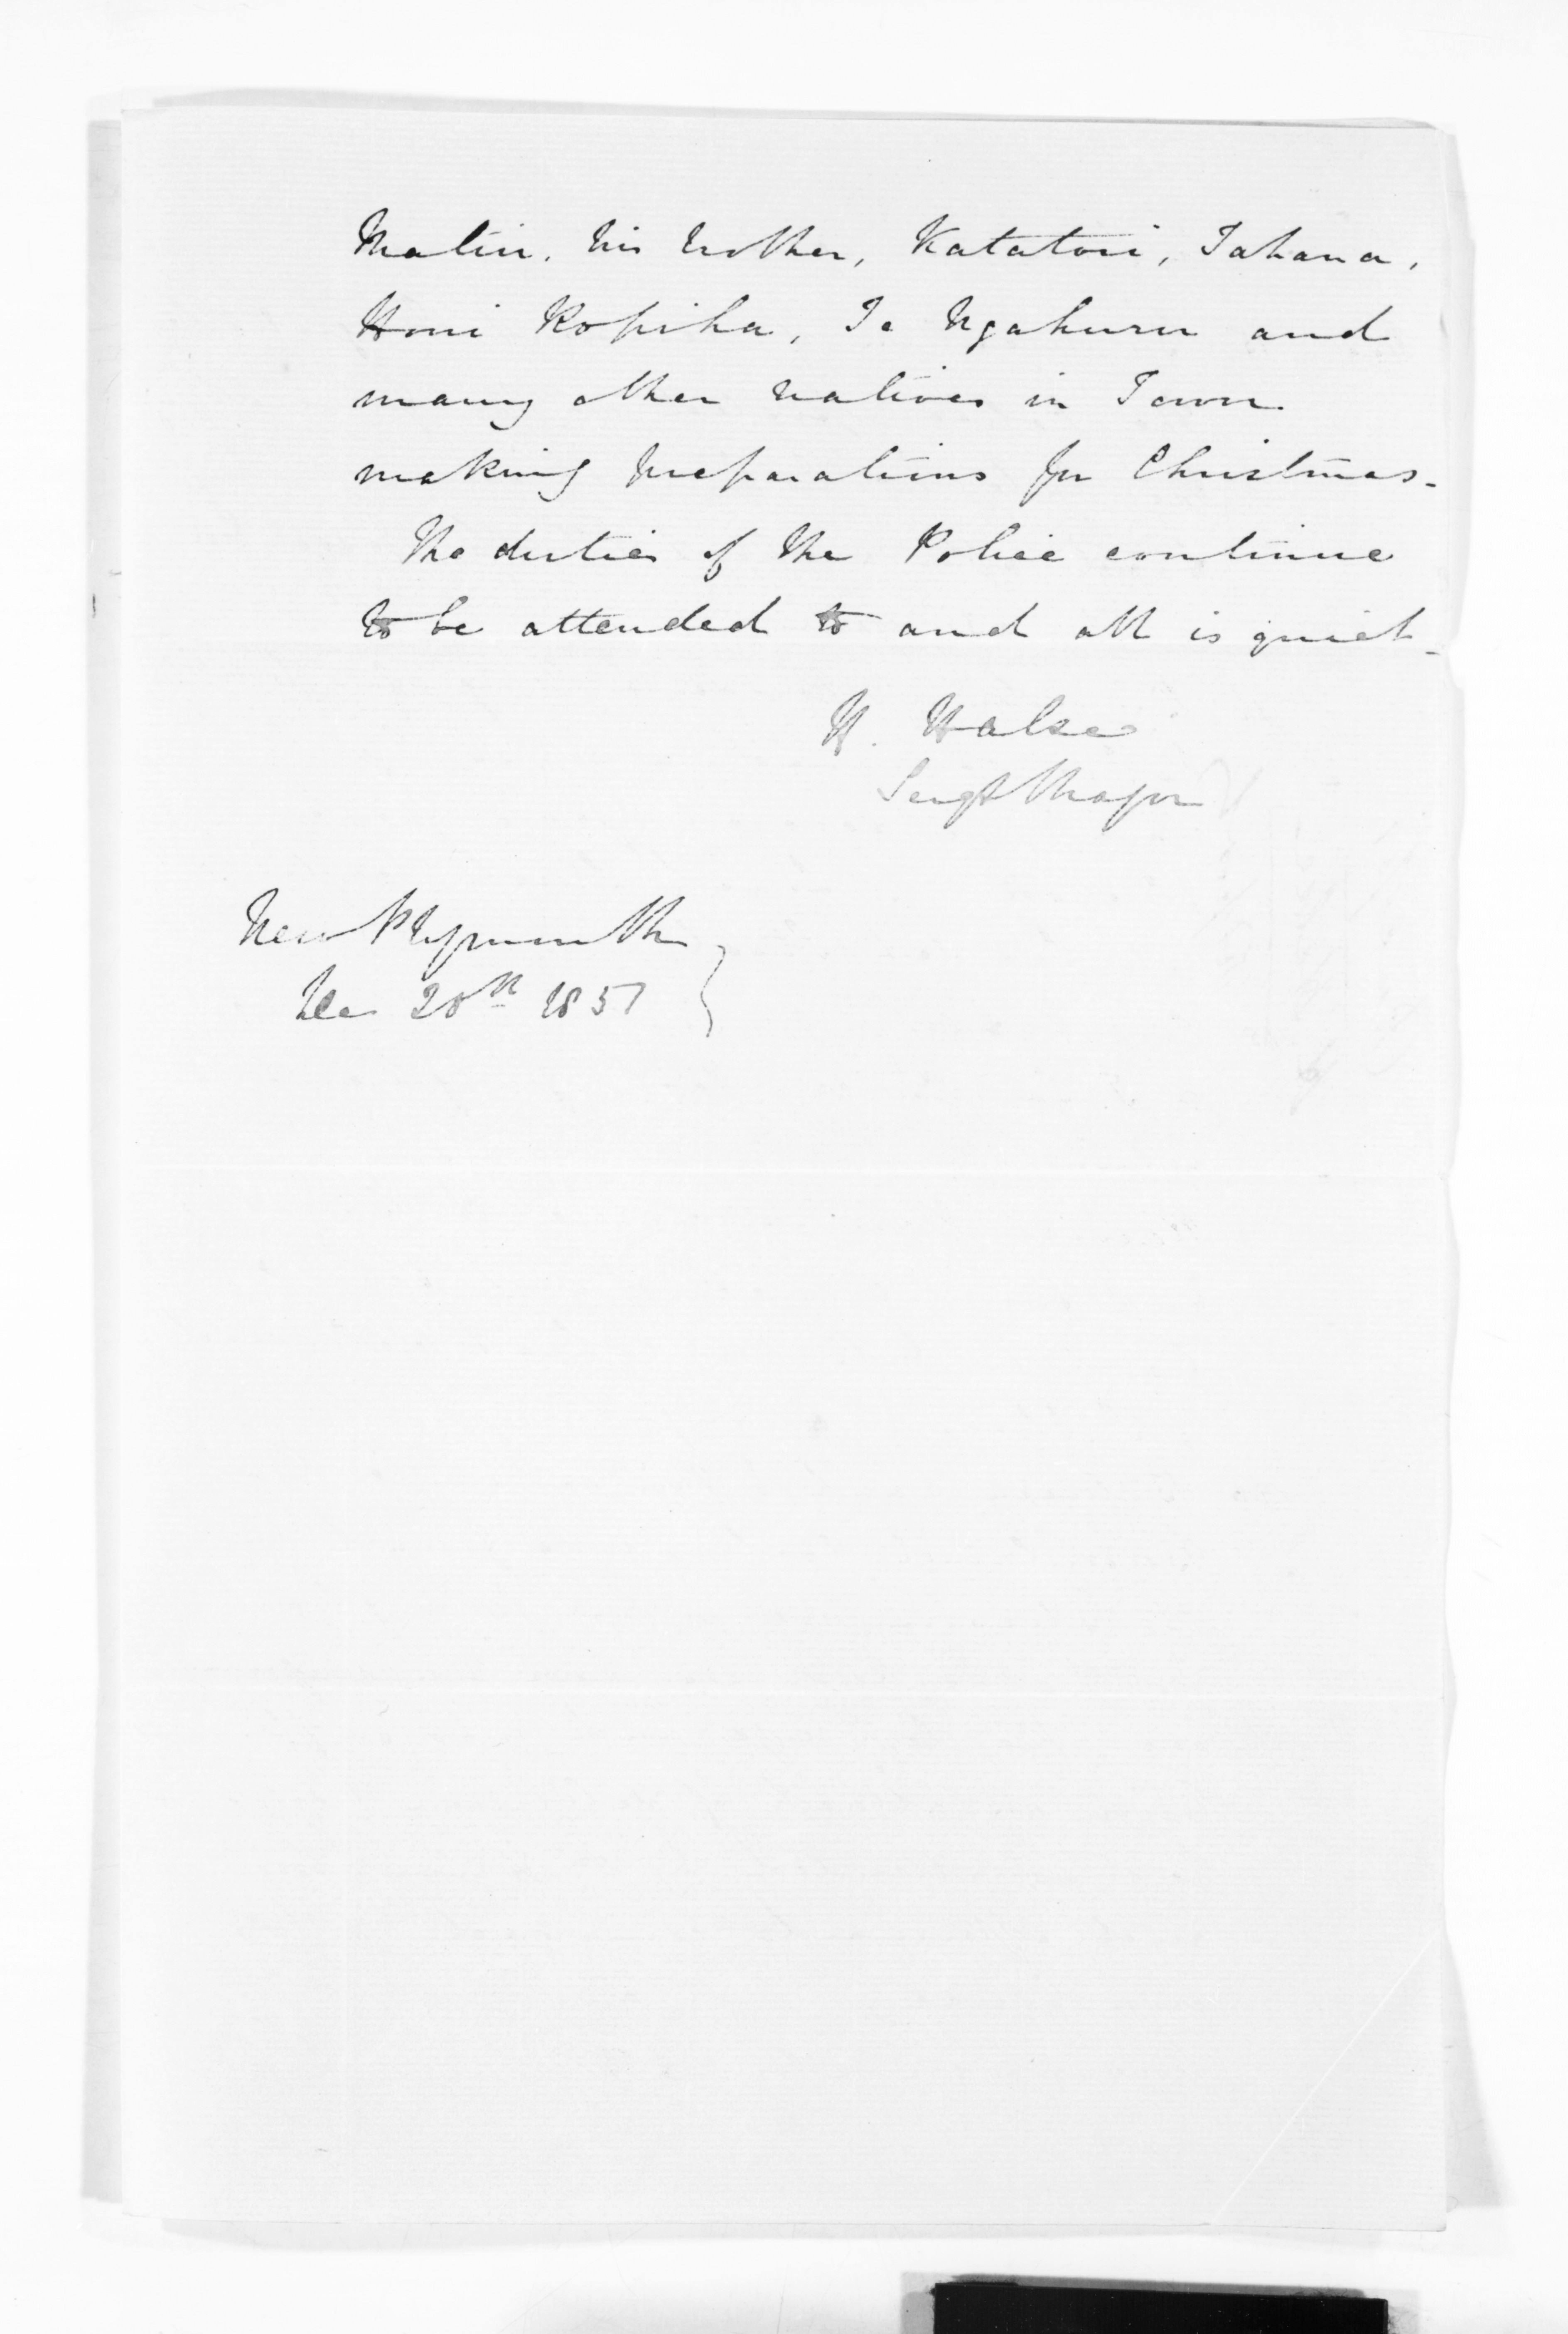 Matiu, his brother, Katatori, Tahana,
Honi Ropiha, Te Ngahuru and
many other natives in Town
making preparations for Christmas.
The duties of the Police continue
to be attended to and all is quiet.
H. Halse
Sergt Major
New Plymouth
Dec 20th 1851